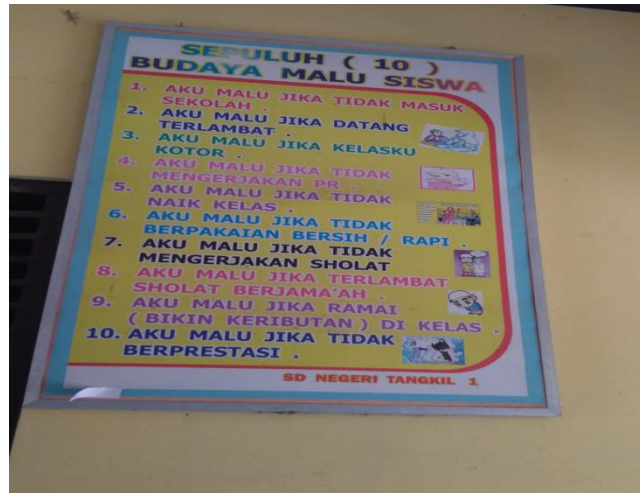 SEPULUH ( 10 )
BUDAYA MALU SISWA
1. AKU MALU JIKA TIDAK MASUK
SEKOLAH .
2. AKU MALU JIKA DATANG
TERLAMBAT .
3. AKU MALU JIKA KELASKU
KOTOR .
4. AKU MALU JIKA TIDAK
MENGERJAKAN PR .
5. AKU MALU JIKA TIDAK
NAIK KELAS .
6. AKU MALU JIKA TIDAK
BERPAKAIAN BERSIH / RAPI .
7. AKU MALU JIKA TIDAK
MENGERJAKAN SHOLAT
8. AKU MALU JIKA TERLAMBAT
SHOLAT BERJAMA'AH .
9. AKU MALU JIKA RAMAI
( BIKIN KERIBUTAN ) DI KELAS .
10. AKU MALU JIKA TIDAK
BERPRESTASI .
SD NEGERI TANGKIL 1